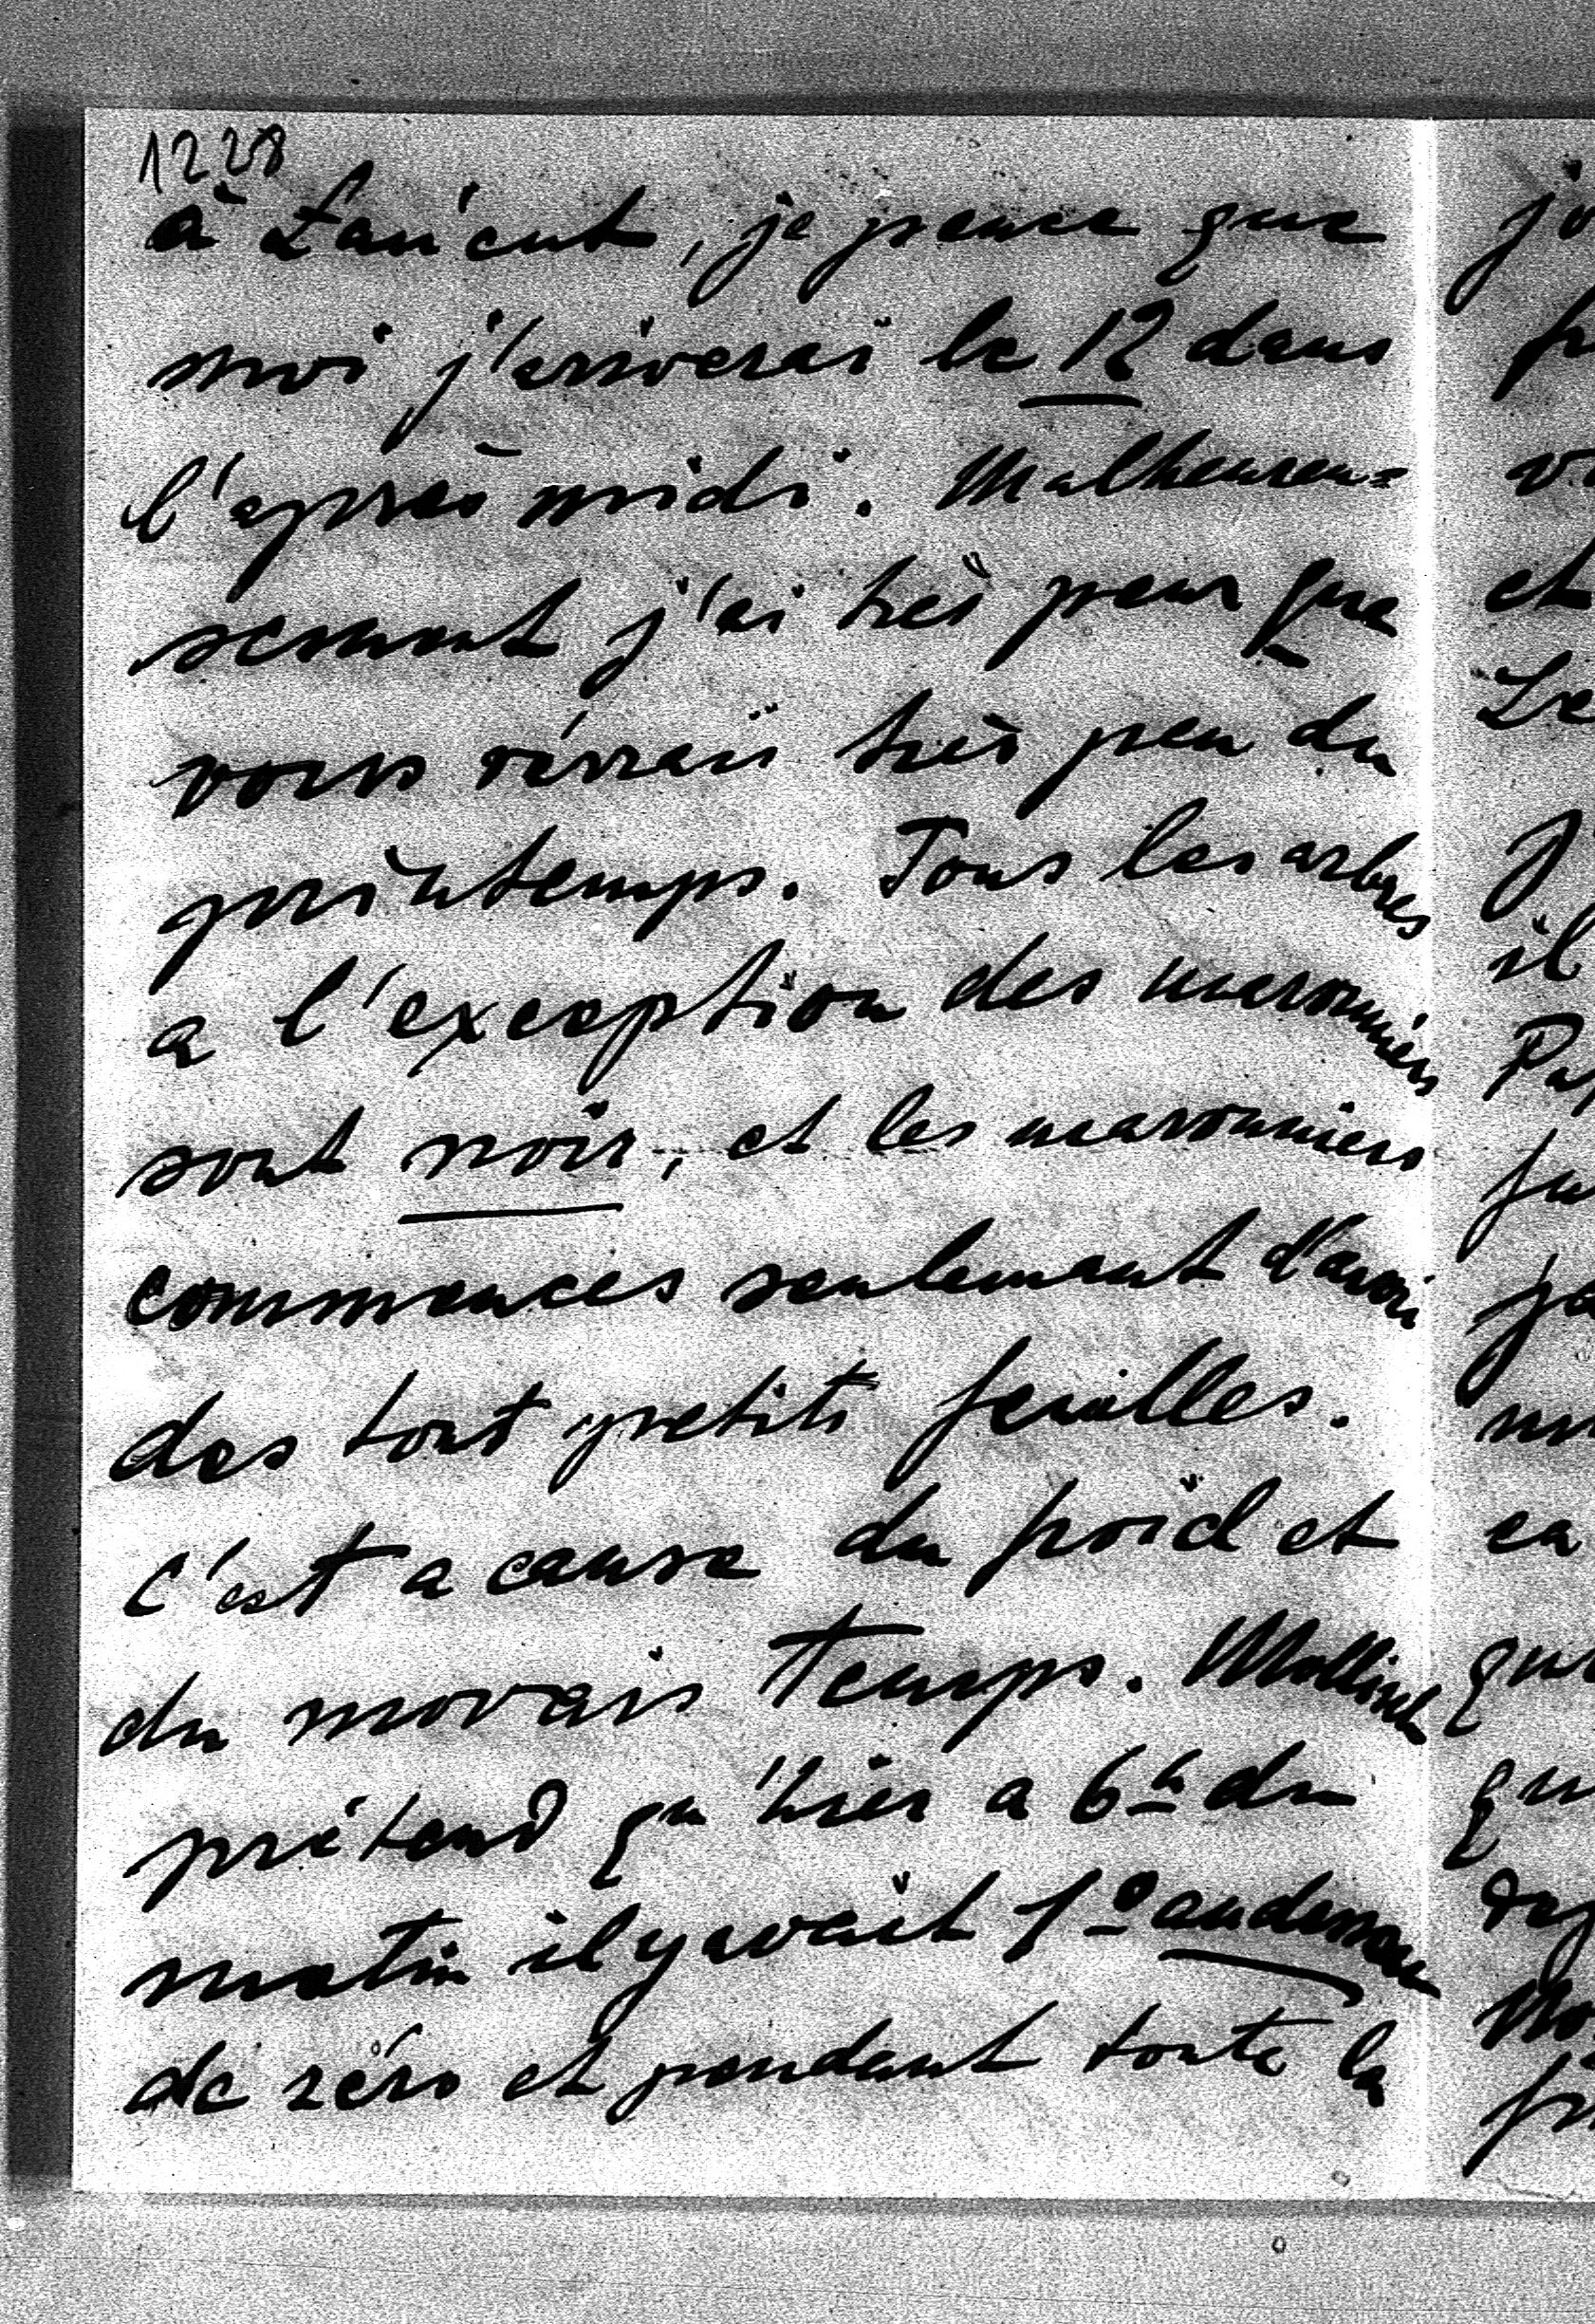 1228
à Lan'cut, je pence que
moi j'arriverai le 12 dans
l'après midi. Malheureu=
sement j'ai très peur que
vous vérrais très peu du
printemps. Tous les arbres
a l'exception des maronniers
sont noir, et les maronniers
commences seulemant d'avoir
des tout petits feuilles.
C'est a cause du froid et
du movais temps. Mollisch
prétend qu'hier a 6h du
matin il y avait 1° audessous
de zéro et pendant toute la